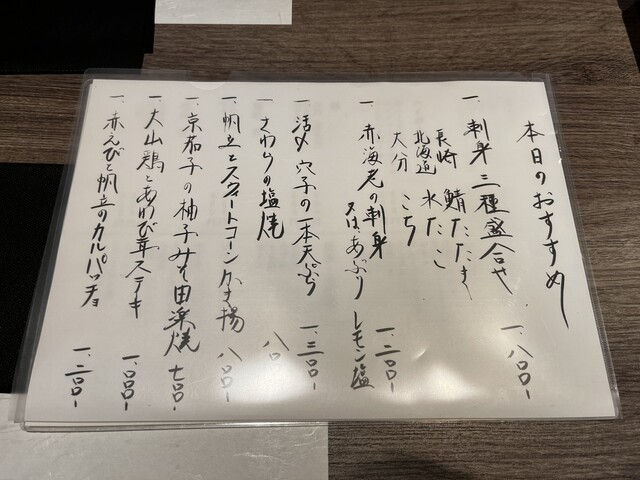 本日のおすすめ
一、刺身三種盛合せ 一、八〇〇-
長崎 鯖たたき
北海道 水たこ
大分 こち
一、赤海老の刺身
又は、あぶり レモン塩 一、二〇〇-
一、活〆穴子の一本天ぷら 一、三〇〇-
一、さわらの塩焼
一、帆立とスイートコーンかき揚 八〇〇-
一、京茄子の柚子みそ田楽焼 七〇〇-
一、大山鶏とあわび茸ステーキ 一、〇〇〇-
一、赤えびと帆立のカルパッチョ 一、二〇〇-